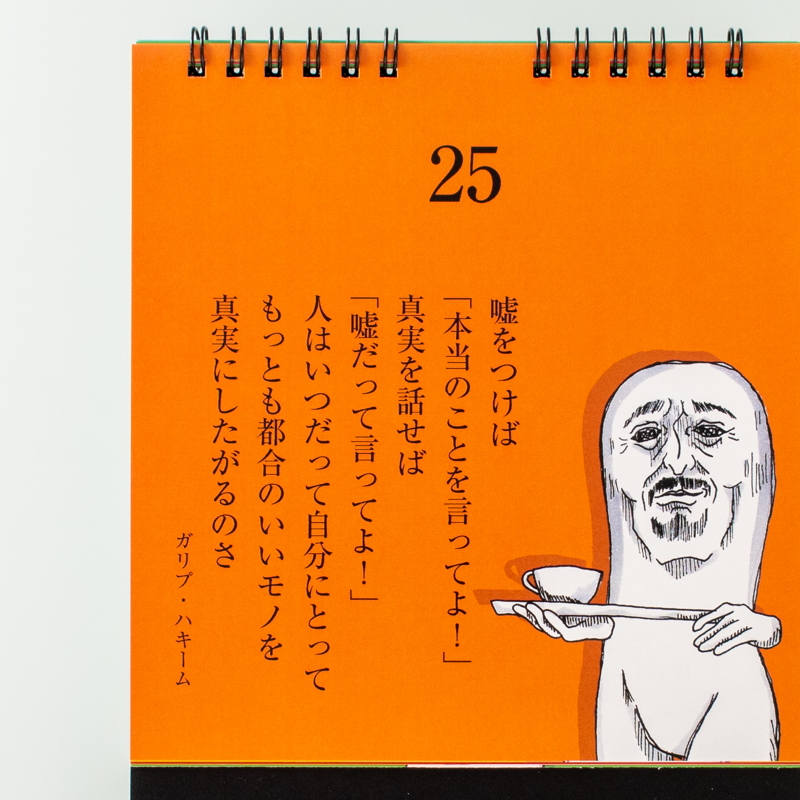 25
嘘をつけば
「本当のことを言ってよ！」
真実を話せば
「嘘だって言ってよ！」
人はいつだって自分にとって
もっとも都合のいいモノを
真実にしたがるのさ
ガリプ・ハキーム